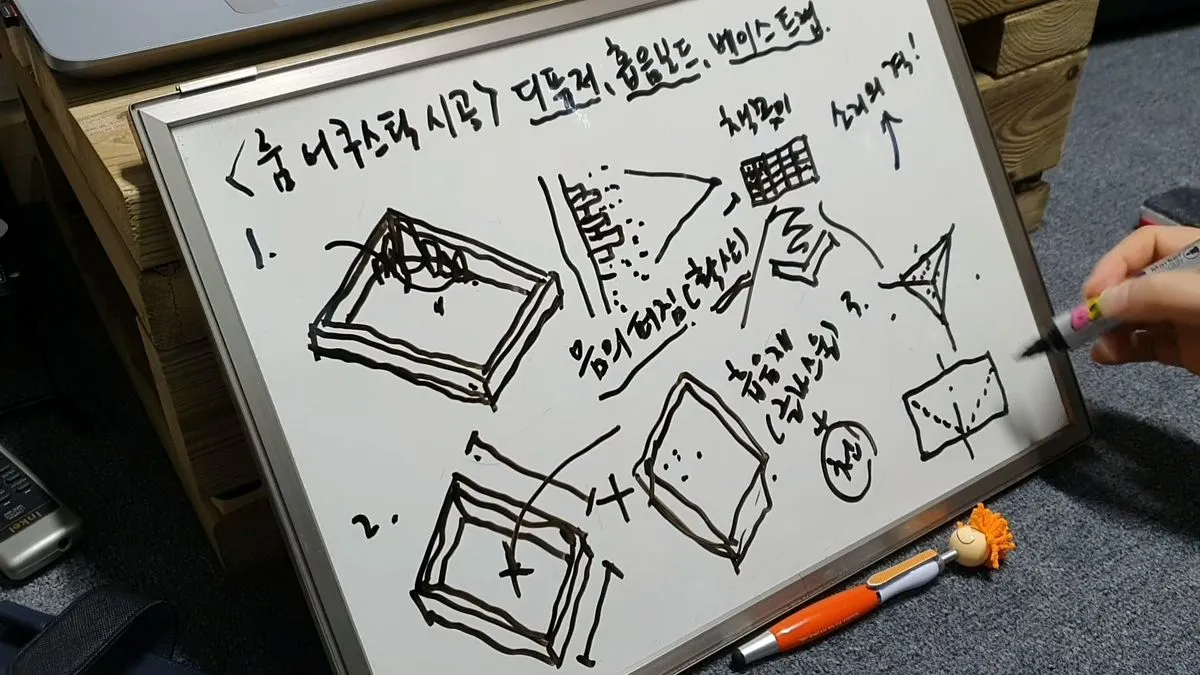 <룸 어쿠스틱 시공> 디퓨저, 흡음보드, 베이스트랩.
1.
책꽂이
소리의 격!
음의 퍼짐(확산)
2.
흡음재
(글라스울)
3.
Inkel